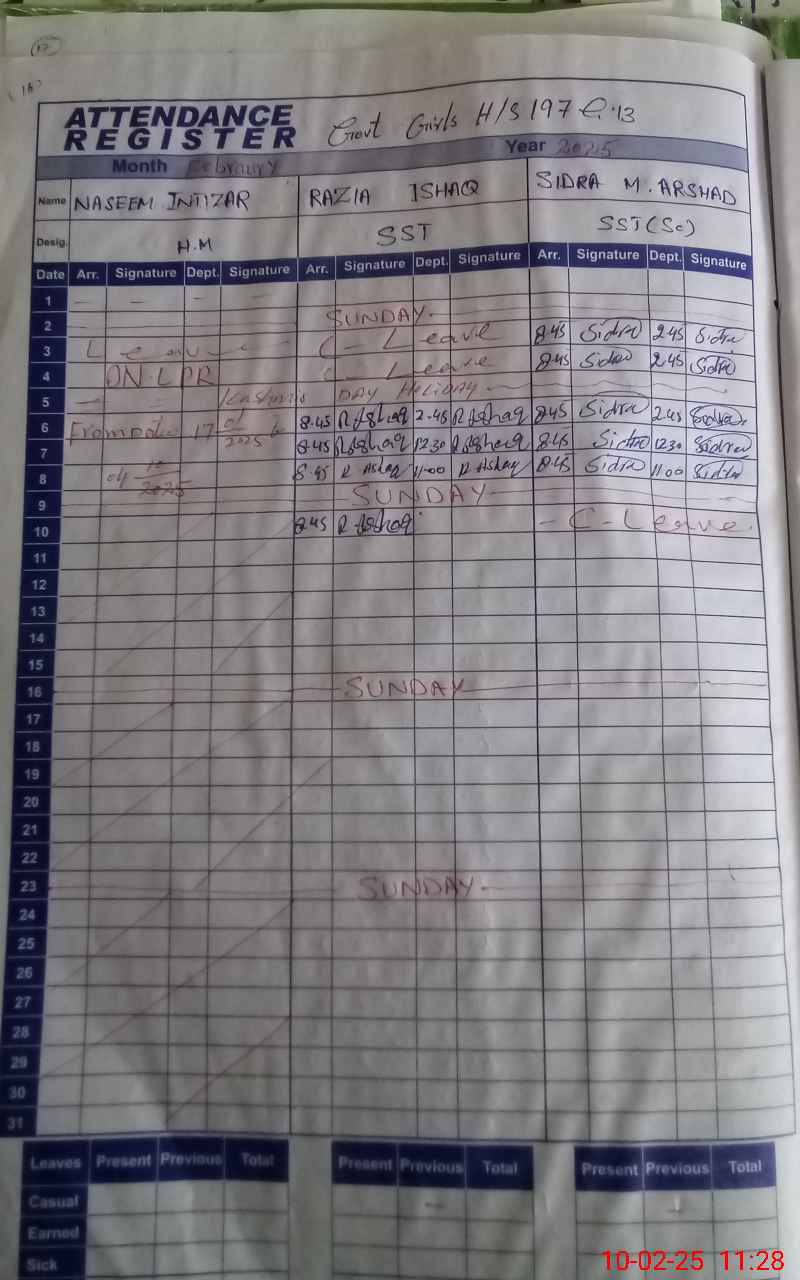 17
(18)
ATTENDANCE
REGISTER
Govt Girls H/S 197 E.13
Month Februury Year 2025
Name NASEEM INTIZAR RAZIA ISHAQ SIDRA M. ARSHAD
Desig. H.M SST SST (Sc)
Date Arr. Signature Dept. Signature Arr. Signature Dept. Signature Arr. Signature Dept. Signature
1 — — — —
2 SUNDAY.
3 Leave C - Leave 8.45 Sidra 2.45 Sidra
4 ON LPR C - Leave 8.45 Sidra 2.45 Sidra
5 Kashmir DAY HOLIDAY
6 From date 17 01 2025 to 8.45 R Ishaq 2.45 R Ishaq 8.45 Sidra 2.45 Sidra
7 8.45 R Ishaq 12.30 R Ishaq 8.45 Sidra 12.30 Sidra
8 04 10 2025 8.45 R Ishaq 11.00 R Ishaq 8.45 Sidra 11.00 Sidra
9 SUNDAY
10 8.45 R Ishaq - C - Leave.
11
12
13
14
15
16 SUNDAY
17
18
19
20
21
22
23 SUNDAY
24
25
26
27
28
29
30
31
Leaves Present Previous Total Present Previous Total Present Previous Total
Casual
Earned
Sick
10-02-25 11:28